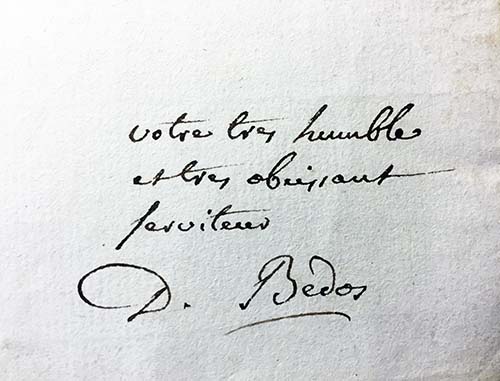 votre tres humble
et tres obeissant
serviteur
D. Bèdos